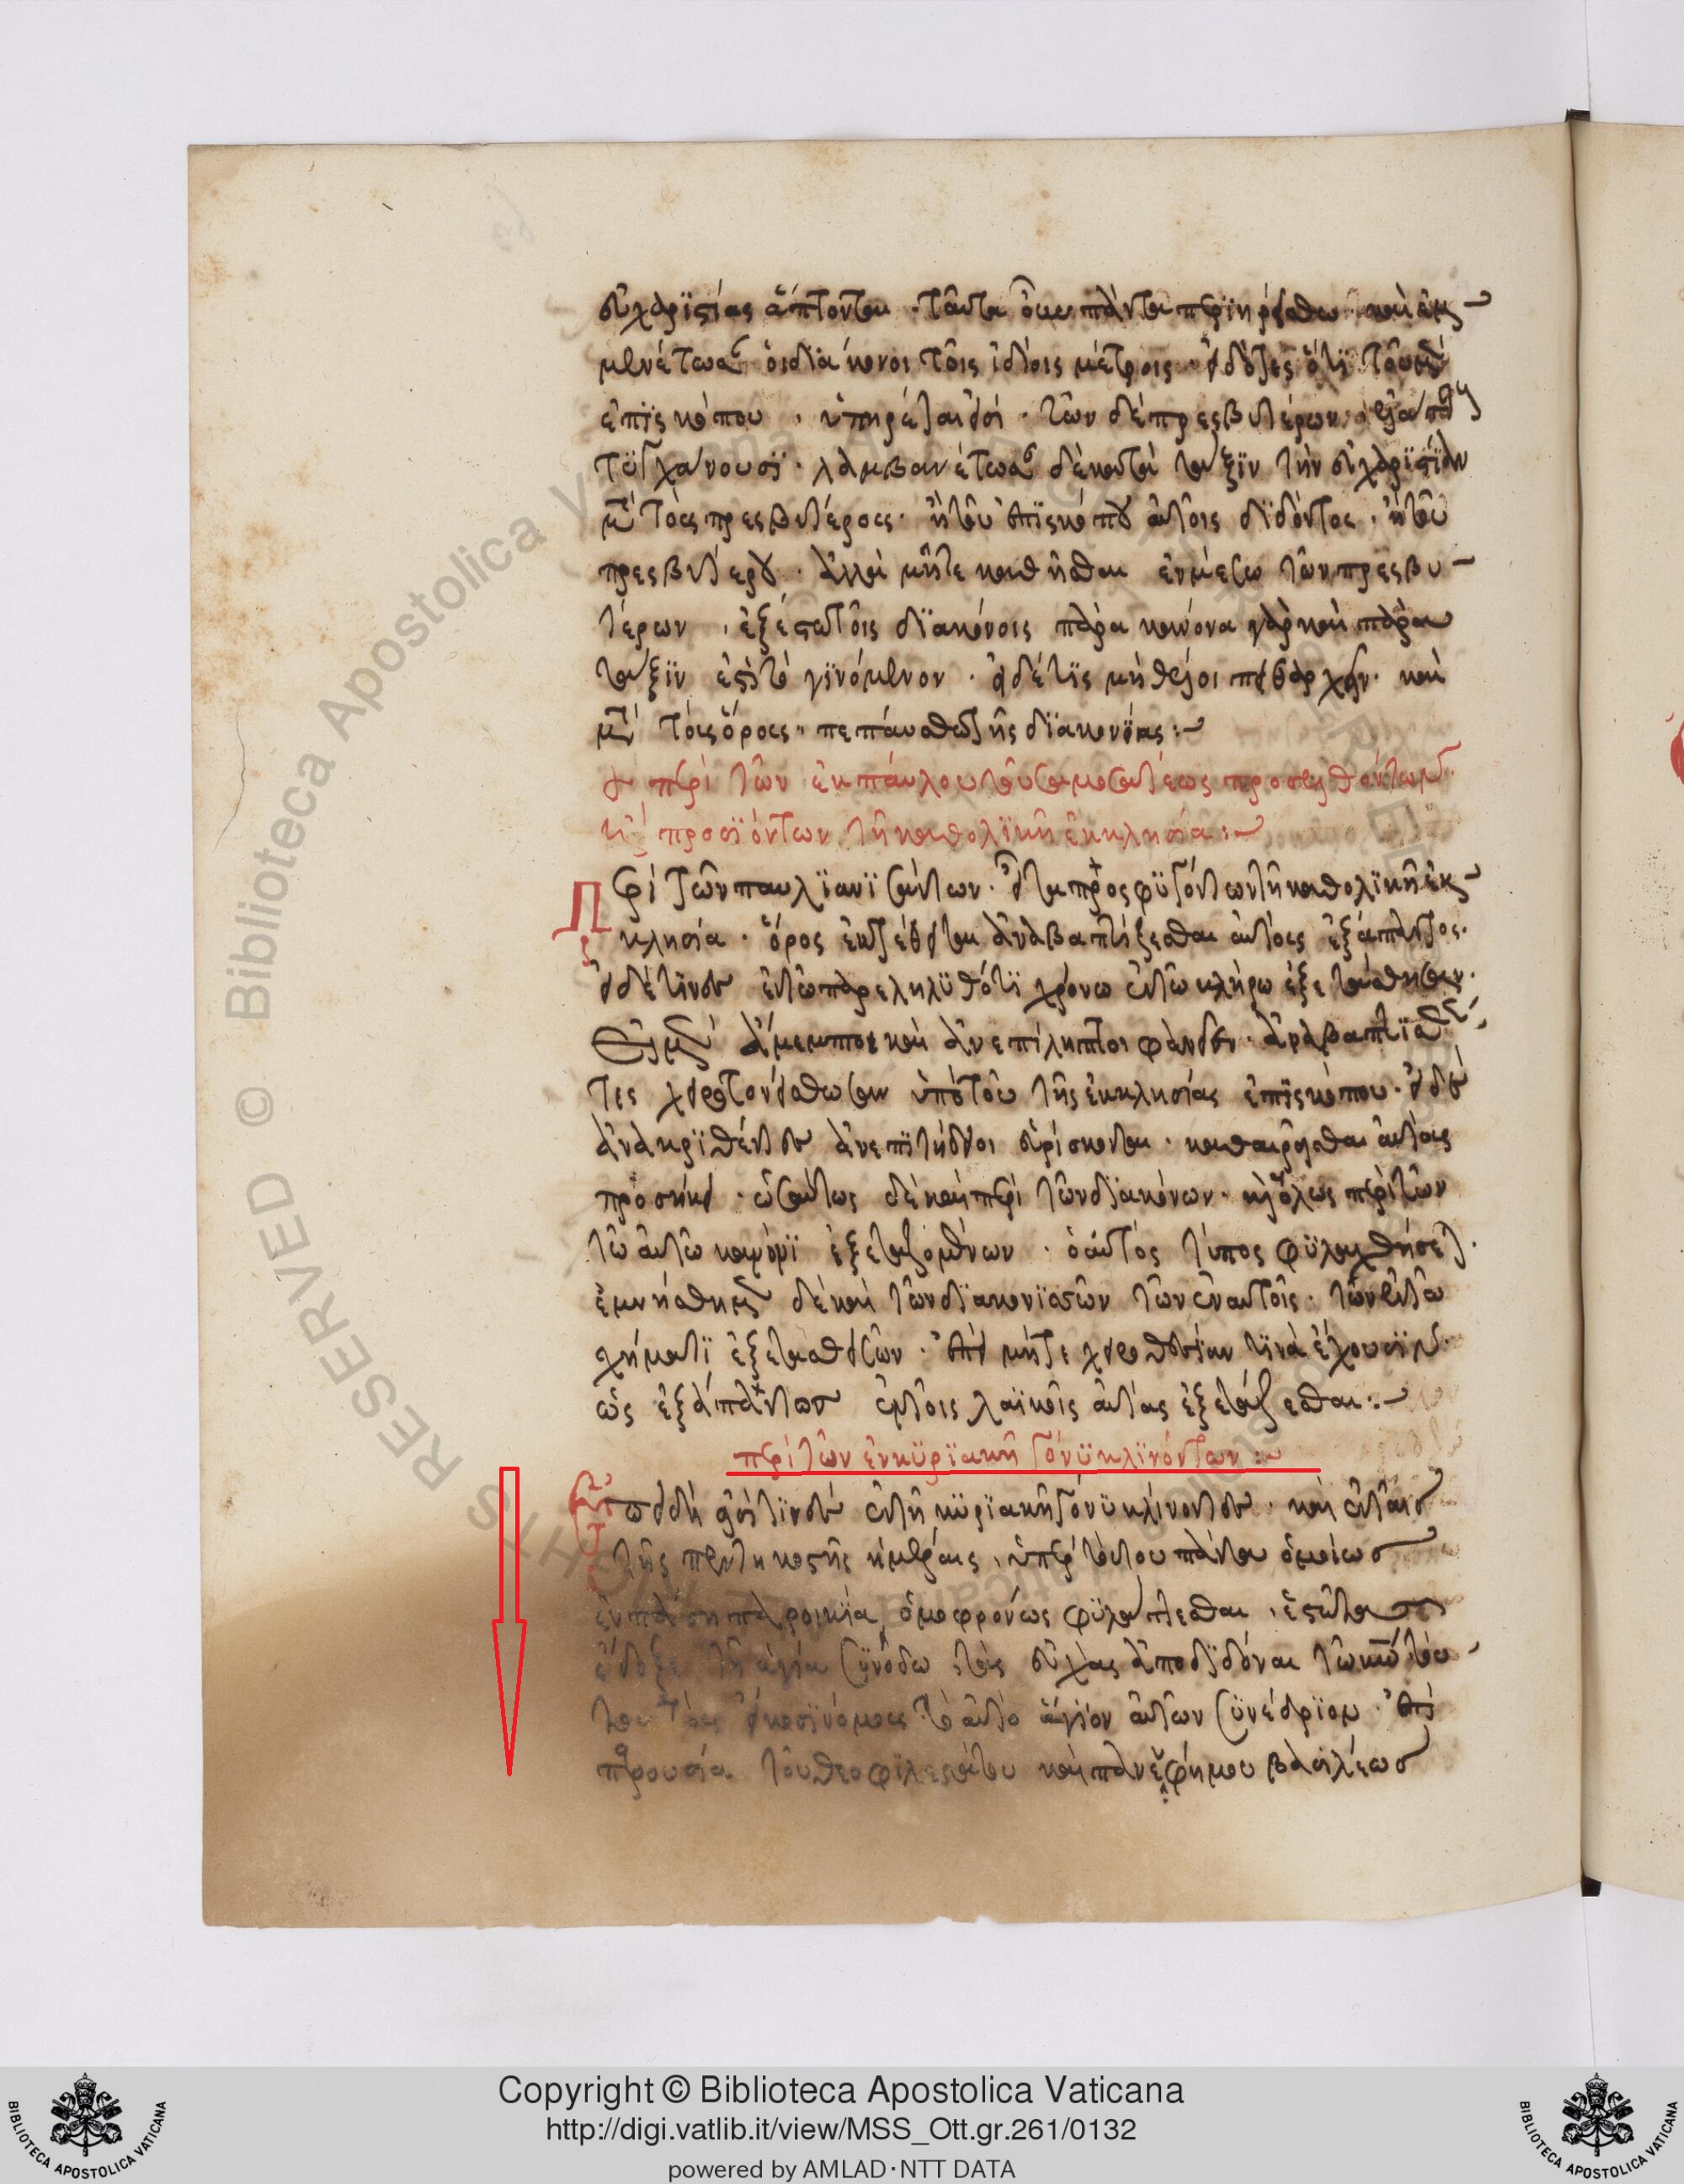 εὐχαριστίας ἅπτονται · ταῦτα οὖν πάντα περιηρήσθω · καὶ ἐμ
μενέτωσαν οἱ διάκονοι τοῖς ἰδίοις μέτροις · εἰδότες ὅτι τοῦ μὲν
ἐπισκόπου · ὑπηρέται εἰσί · τῶν δὲ πρεσβυτέρων ἐλάττους
τυγχάνουσι · λαμβανέτωσαν δὲ κατὰ τάξιν τὴν εὐχαριστίαν
μετὰ τοὺς πρεσβυτέρους · ἢ τοῦ ἐπισκόπου αὐτοῖς διδόντος · ἢ τοῦ
πρεσβυτέρου · ἀλλὰ μήτε καθῆσθαι ἐν μέσω τῶν πρεσβυ
τέρων · ἐξέστω τοῖς διακόνοις παρὰ κανόνα γὰρ καὶ παρὰ
τάξιν ἐστὶ τὸ γινόμενον · εἰ δέ τις μὴ θέλοι πειθαρχεῖν · καὶ
μετὰ τοὺς ὅρους · πεπαύσθω τῆς διακονίας :~
περὶ τῶν ἐκ παύλου τοῦ σαμοσατέως προσελθόντων
προσιόντων τῆ καθολικῆ ἐκκλησία :~
Περὶ τῶν παυλιανισάντων · εἶτα προσφυγόντων τῆ καθολικῆ ἐκ
κλησία · ὅρος ἐκτέθειται ἀναβαπτίζεσθαι αὐτοὺς ἐξάπαντος ·
εἰ δέ τινες ἐν τῶ παρεληλυθότι χρόνω ἐν τῶ κλήρω ἐξετάσθησαν ·
εἰ μὲν ἄμεμπτοι καὶ ἀνεπίληπτοι φανεῖεν · ἀναβαπτισθέν
τες χειροτονείσθωσαν ὑπὸ τοῦ τῆς ἐκκλησίας ἐπισκόπου · εἰ δὲ
ἀνακριθέντες ἀνεπιτήδειοι εὑρίσκονται · καθαιρεῖσθαι αὐτοὺς
προσήκει · ὡσαύτως δὲ καὶ περὶ τῶν διακόνων · καὶ ὅλως περὶ τῶν
τῶ αὐτῶ κανόνι ἐξεταζομένων · ὁ αὐτὸς τύπος φυλαχθήσεται ·
ἐμνήσθημεν δὲ καὶ τῶν διακονισσῶν τῶν ἐν αὐτοῖς · τῶν ἐν τῶ
σχήματι ἐξετασθεισῶν · ἐπεὶ μήτε χειροθεσίαν τινὰ ἔχουσιν ·
ὡς ἐξάπαντος ἐν τοῖς λαϊκοῖς αὐτὰς ἐξετάζεσθαι :~
περὶ τῶν ἐν κυριακῆ γόνυ κλινόντων :~
Ἐπειδή εἰσί τινες ἐν τῆ κυριακῆ γόνυ κλίνοντες · καὶ ἐν ταῖς
τῆς πεντηκοστῆς ἡμέραις · ὑπὲρ τοῦ τοῦ πάντα ὁμοίως
ἐν πάση παροικία ὁμοφρόνως φυλάττεσθαι · ἑστῶτας
ἔδοξε τῆ ἁγία συνόδω τὰς εὐχὰς ἀποδιδόναι τῶ κυρίω
τὸ αὐτὸ ἅγιον αὐτῶν συνέδριον · ἐπὶ
παρουσία τοῦ θεοφιλεστάτου καὶ πανευφήμου βασιλέως
RESERVED © Biblioteca Apostolica Vaticana
Copyright © Biblioteca Apostolica Vaticana
http://digi.vatlib.it/view/MSS_Ott.gr.261/0132
powered by AMLAD·NTT DATA
BIBLIOTECA APOSTOLICA VATICANA
BIBLIOTECA APOSTOLICA VATICANA